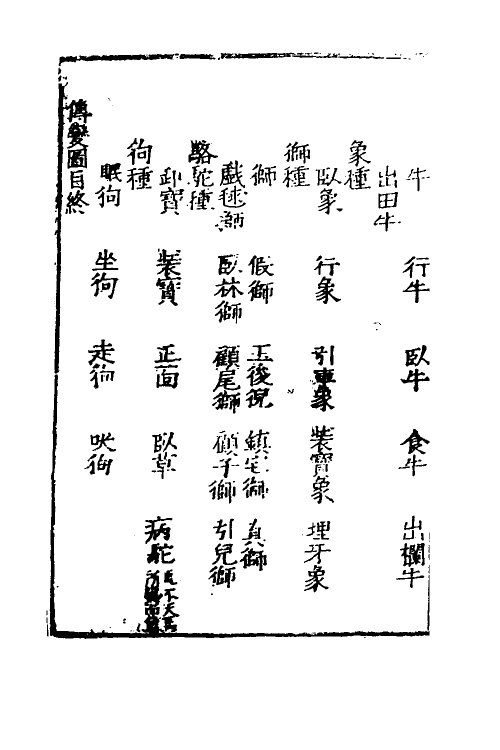 牛 行牛 臥牛 食牛 出欄牛
出田牛
象種
臥象 行象 引車象 裝寶象 埋牙象
獅種
獅 假獅 玉後猊 鎮宅獅 真獅
戲毬獅 臥林獅 顧尾獅 顧子獅 引兒獅
駱駝種
卸寶 裝寶 正面 臥草 病駝
狗種
眠狗 坐狗 走狗 吠狗
傳變圖目終